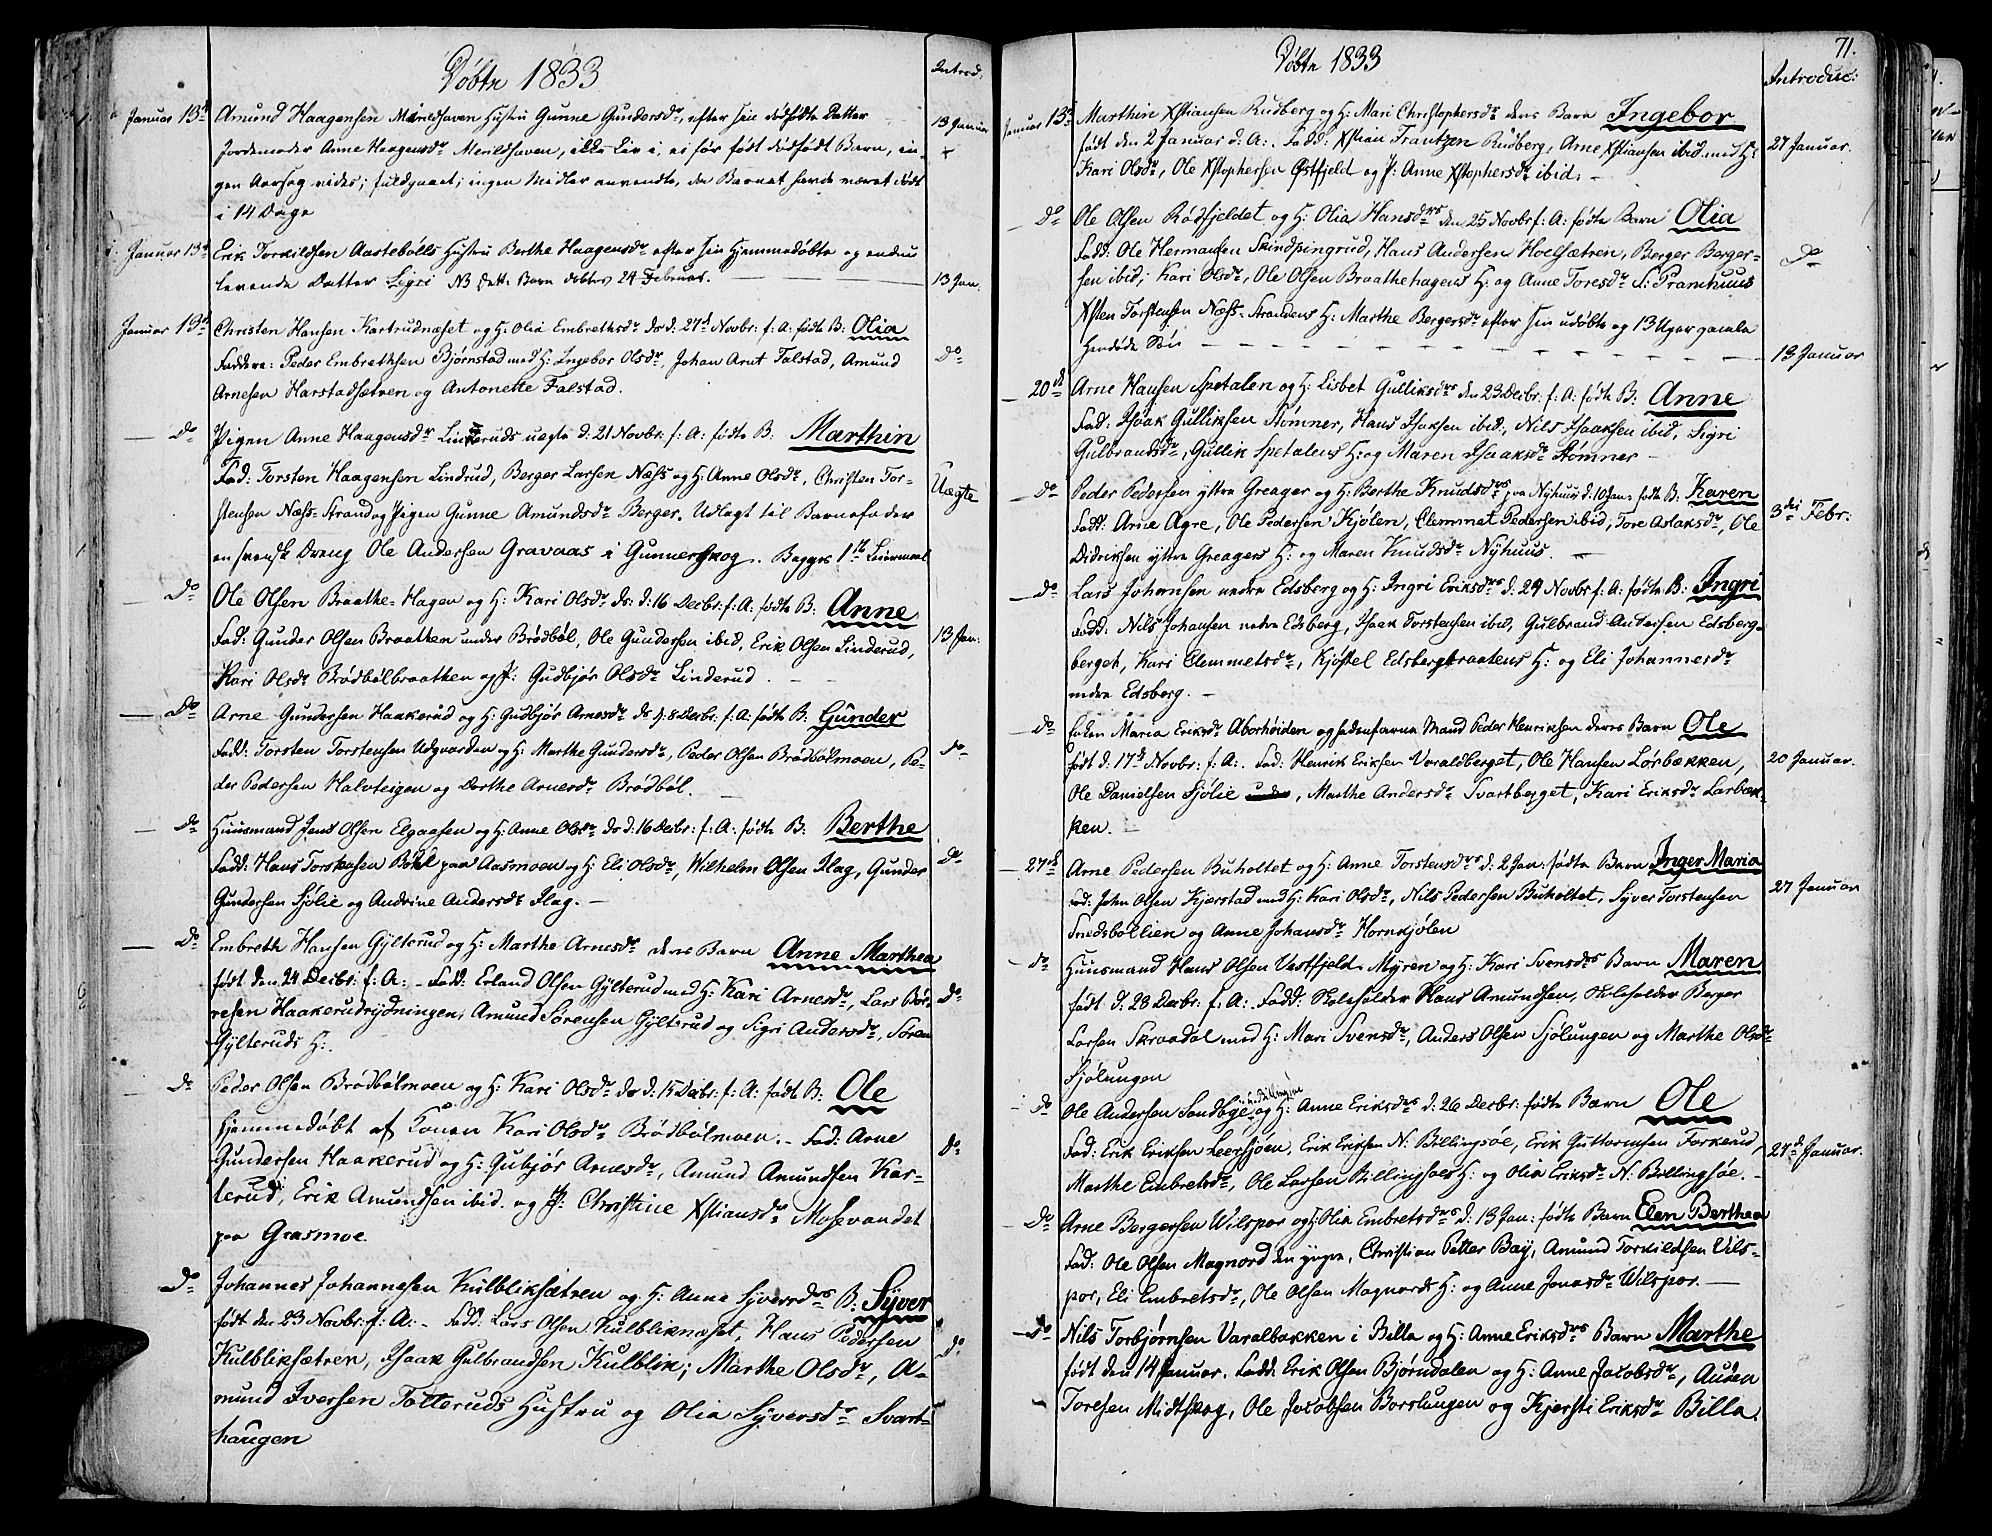 Døbte 1833
Introd:
Januar 13de Amund Haagensen Mærildhaven Hustru Gunne Gundersdr, efter sin dødfødte Datter 13 Januar
Jordemoder Anne Haagensdr Merildhaven, ikke Liv i, ei før født dødfødt Barn, in-
gen Aarsag vides; fuldgaaet; ingen Midler anvendte, da Barnet havde været dødt
i 14 Dage
Januar 13de Erik Torkildsen Aastebølls Hustru Berthe Haagensdr efter sin hjemmedøbte og endnu
levende Datter Sigri NB Dette Barn døbtes 24 Februar. 13 Jan.
Januar 13de Christen Hansen Kartrudnæset og H: Olia Embrethsdr ds d: 27de Novbr: f: A: fødte B: Olia
Faddere: Peder Embrethsen Bjørnstad med H: Ingebor Olsdr, Johan Arnt Falstad, Amund Do
Arnesen Harstadsætren og Antonette Falstad.
Do Pigen Anne Haagensdr Linderuds uægte d: 21 Novbr: f: A: fødte B: Marthin
Fad: Torsten Haagensen Lindrud, Berger Larsen Næss og H: Anne Olsdr, Christen Tor- Uægte
stensen Næss-Strand og Pigen Gunne Amundsdr Berger. Udlagt til Barnefader
en svensk Dreng Ole Andersen Gravaas i Gunnerskog. Begges 1ste Leiermaal
Do Ole Olsen Braathe-Hagen og H: Kari Olsdr ds: d: 16 Decbr: f: A: fødte B: Anne
Fad: Gunder Olsen Braathen under Brødbøl, Ole Gundersen ibid, Erik Olsen Linderud, 13 Jan:
Kari Olsdr Brødbølbraathen og P: Gudbjør Olsdr Linderud.
Do Arne Gundersen Haakerud og H: Gudbjør Arnesdr ds d: 8 Decbr: f: A: fødte B: Gunder
Fadd: Torsten Torstensen Udgaarden og H: Marthe Gundersdr, Peder Olsen Brødbølmoen, Pe- Do
der Pedersen Halvteigen og Dorthe Arnesdr Brødbøl.
Do Huusmand Jens Olsen Elgaasen og H: Anne Olsdr ds d: 16 Decbr: f: A: fødte B: Berthe
Fadd: Hans Torstensen Bøhl paa Aasmoen og H: Eli Olsdr, Wilhelm Olsen Flag, Gunder Do
Gundersen Sjølie og Andrine Andersdr Flag.
Do Embreth Hansen Gylterud og H: Marthe Arnesdr deres Barn Anne Marthea
født den 24 Decbr: f: A: Fadd: Erland Olsen Gylterud med H: Kari Arnesdr, Lars Bør- Do
resen Haakerudrydningen, Amund Sørensen Gylterud og Sigri Andersdr, Søren
Gylteruds H:.
Do Peder Olsen Brødbølmoen og H: Kari Olsdr ds d: 15 Decbr: f: A: født B: Ole
Hjemmedøbt af Konen Kari Olsdr Brødbølmoen. Fad: Arne Do
Gundersen Haakerud og H: Gubjør Arnesdr, Amund Amundsen Kar-
terud, Erik Amundsen ibid. og P: Christine Xstiansdr Mosevandet
paa Grasmoe.
Do Johannes Johannesen Kulbliksætren og H: Anne Syversdrs B: Syver
født den 23 Novbr: f: A: Fadd: Lars Olsen Kulbliknæset, Hans Pedersen Do
Kulbliksætren, Isaak Gulbrandsen Kulblik; Marthe Olsdr, A-
mund Iversen Totteruds Hustru og Olia Syversdr Svart-
haugen
Døbte 1833
71.
Introduc:
Januar 13de Marthin Xstiansen Rudberg og H: Mari Christophersdr deres Barn Ingebor
født den 2 Januar d: A: Fadd: Xstian Frantzen Rudberg, Arne Xstiansen ibid med H: 27 Januar.
Kari Olsdr, Ole Xstophersen Østfjeld og P: Anne Xstophersdr ibid.
Do Ole Olsen Rødfjeldet og H: Olia Hansdrs den 25 Novbr f: A: fødte Barn Olia
Fadd: Ole Hermansen Skindpingrud, Hans Andersen Hoelsætren, Berger Berger- Do
sen ibid; Kari Olsdr, Ole Olsen Braathehagens H: og Anne Toresdr S: Pramhuus
Xsten Torstensen Næss-Strandens H: Marthe Bergersdr efter sin udøbte og 13 Uger gamle
hendøde Søn 13 Januar
20de Arne Hansen Spetalen og H: Lisbet Gulliksdrs den 23 Decbr. f: A: fødte B: Anne
Fad: Isaak Gulliksen Stømner, Hans Isaksen ibid:, Nils Isaaksen ibid, Sigri
Gulbrandsdr, Gullik Spetalens H: og Maren Isaaksdr Stømner
Do Peder Pedersen yttre Greager og H: Berthe Knudsdrs fra Nyhuus d: 10 Jan: fødte B: Karen
Fadd: Arne Agre, Ole Pedersen Kjølen, Clemmet Pedersen ibid, Tore Aslaksdr, Ole 3die Febr:
Didriksen yttre Greagers H: og Maren Knudsdr Nyhuus.
Do Lars Johansen nedre Edsberg og H: Ingri Eriksdrs d: 24 Novbr f: A: fødte B: Ingri
Fadd: Nils Johansen nedre Edsberg, Isaak Torstensen ibid, Gulbrand Andersen Edsberg-
berget, Kari Clemmetsdr, Kjøstel Edsbergbraatens H: og Eli Johannesdr
nedre Edsberg.
Do Enken Maria Eriksdr Aborhøiden og hedenfarne Mand Peder Henriksen deres Barn Ole
født d. 17de Novbr: f: A: Fad: Henrik Eriksen Varaldberget, Ole Hansen Lørbækken, 20 Januar.
Ole Danielsen Sjølie, Marthe Andersdr Svartberget, Kari Eriksdr Lørbæk-
ken.
27de Arne Pedersen Buholtet og H: Anne Torstensdrs d: 2 Jan: fødte Barn Inger Maria
Fad: John Olsen Kjerstad med H: Kari Olsdr, Nils Pedersen Buholtet, Syver Torstensen 27 Januar
Snedsbøllien og Anne Johansdr Hornkjølen
Do Huusmand Hans Olsen Vestfjeld-Myren og H: Kari Svensdrs Barn Maren
født d. 28 Decbr: f: A: Fadd: Skoleholder Hans Amundsen, Skoleholder Berger
Larsen Skraadal med H: Mari Svensdr, Anders Olsen Sjølungen og Marthe Olsdr
Sjølungen
Do Ole Andersen Sandbye og H: Anne Eriksdrs d: 26 Decbr: fødte Barn Ole
Fad: Erik Eriksen Leersjøen, Erik Eriksen N: Billingsøe, Erik Guttormsen Forkerud, 27de Januar.
Marthe Embretsdr, Ole Larsen Billingsøes H: og Olia Eriksdr N: Billingsøe.
Do Arne Bergersen Wilspor og H: Olia Embretsdrs d: 13 Jan: fødte Barn Elen Berthea
Fad: Ole Olsen Magnord den yngre, Christian Petter Bay, Amund Torkildsen Vils-
por, Eli Embretsdr, Ole Olsen Magnords H: og Anne Jonasdr Wilspor.
Do Nils Torbjørnsen Varalbakken i Billa og H: Anne Eriksdrs Barn Marthe
født den 14 Januar. Fadd: Erik Olsen Bjørndalen og H: Anne Jacobsdr, Auden
Toresen Midtskog, Ole Jacobsen Børslungen og Kjersti Eriksdr Billa.